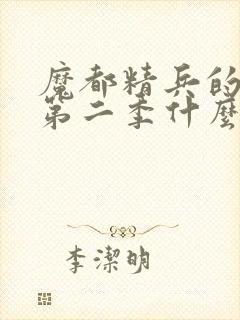 魔都精兵的
第二季什麼
李潔明